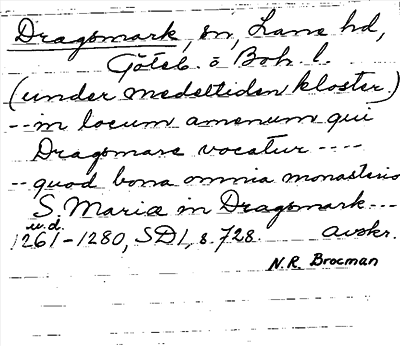 Dragsmark, sn, Lane hd,
Göteb. o Boh. l.
(under medeltiden kloster.)
-- in locum amenum qui
Dragsmarc vocatur ----
-- quod bona omnia monasterio
S. Maria in Dragsmark ---
u.d.
1261-1280, SD1, s. 728. avskr.
N.R. Brocman